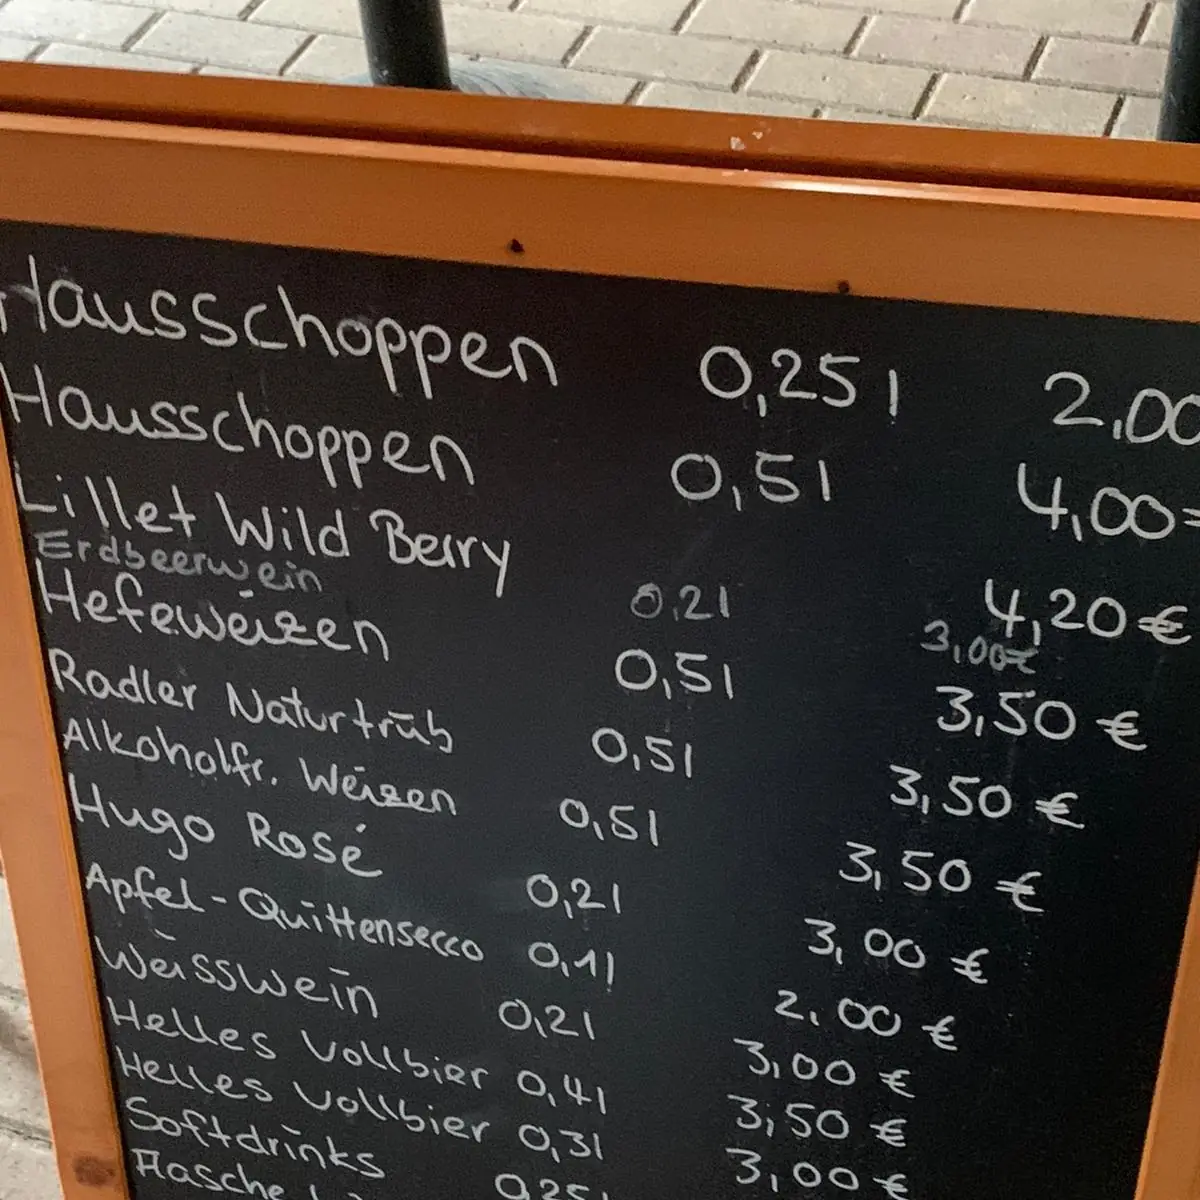 Hausschoppen 0,25 l 2,00
Hausschoppen 0,5 l 4,00
Lillet Wild Berry 4,20 €
Erdbeerwein 0,2 l 3,00 €
Hefeweizen 0,5 l 3,50 €
Radler Naturtrüb 0,5 l 3,50 €
Alkoholfr. Weizen 0,5 l 3,50 €
Hugo Rosé 0,2 l 3,00 €
Apfel-Quittensecco 0,1 l 2,00 €
Weisswein 0,2 l 3,00 €
Helles Vollbier 0,4 l 3,50 €
Helles Vollbier 0,3 l 3,00 €
Softdrinks 0,25 l
Flasche